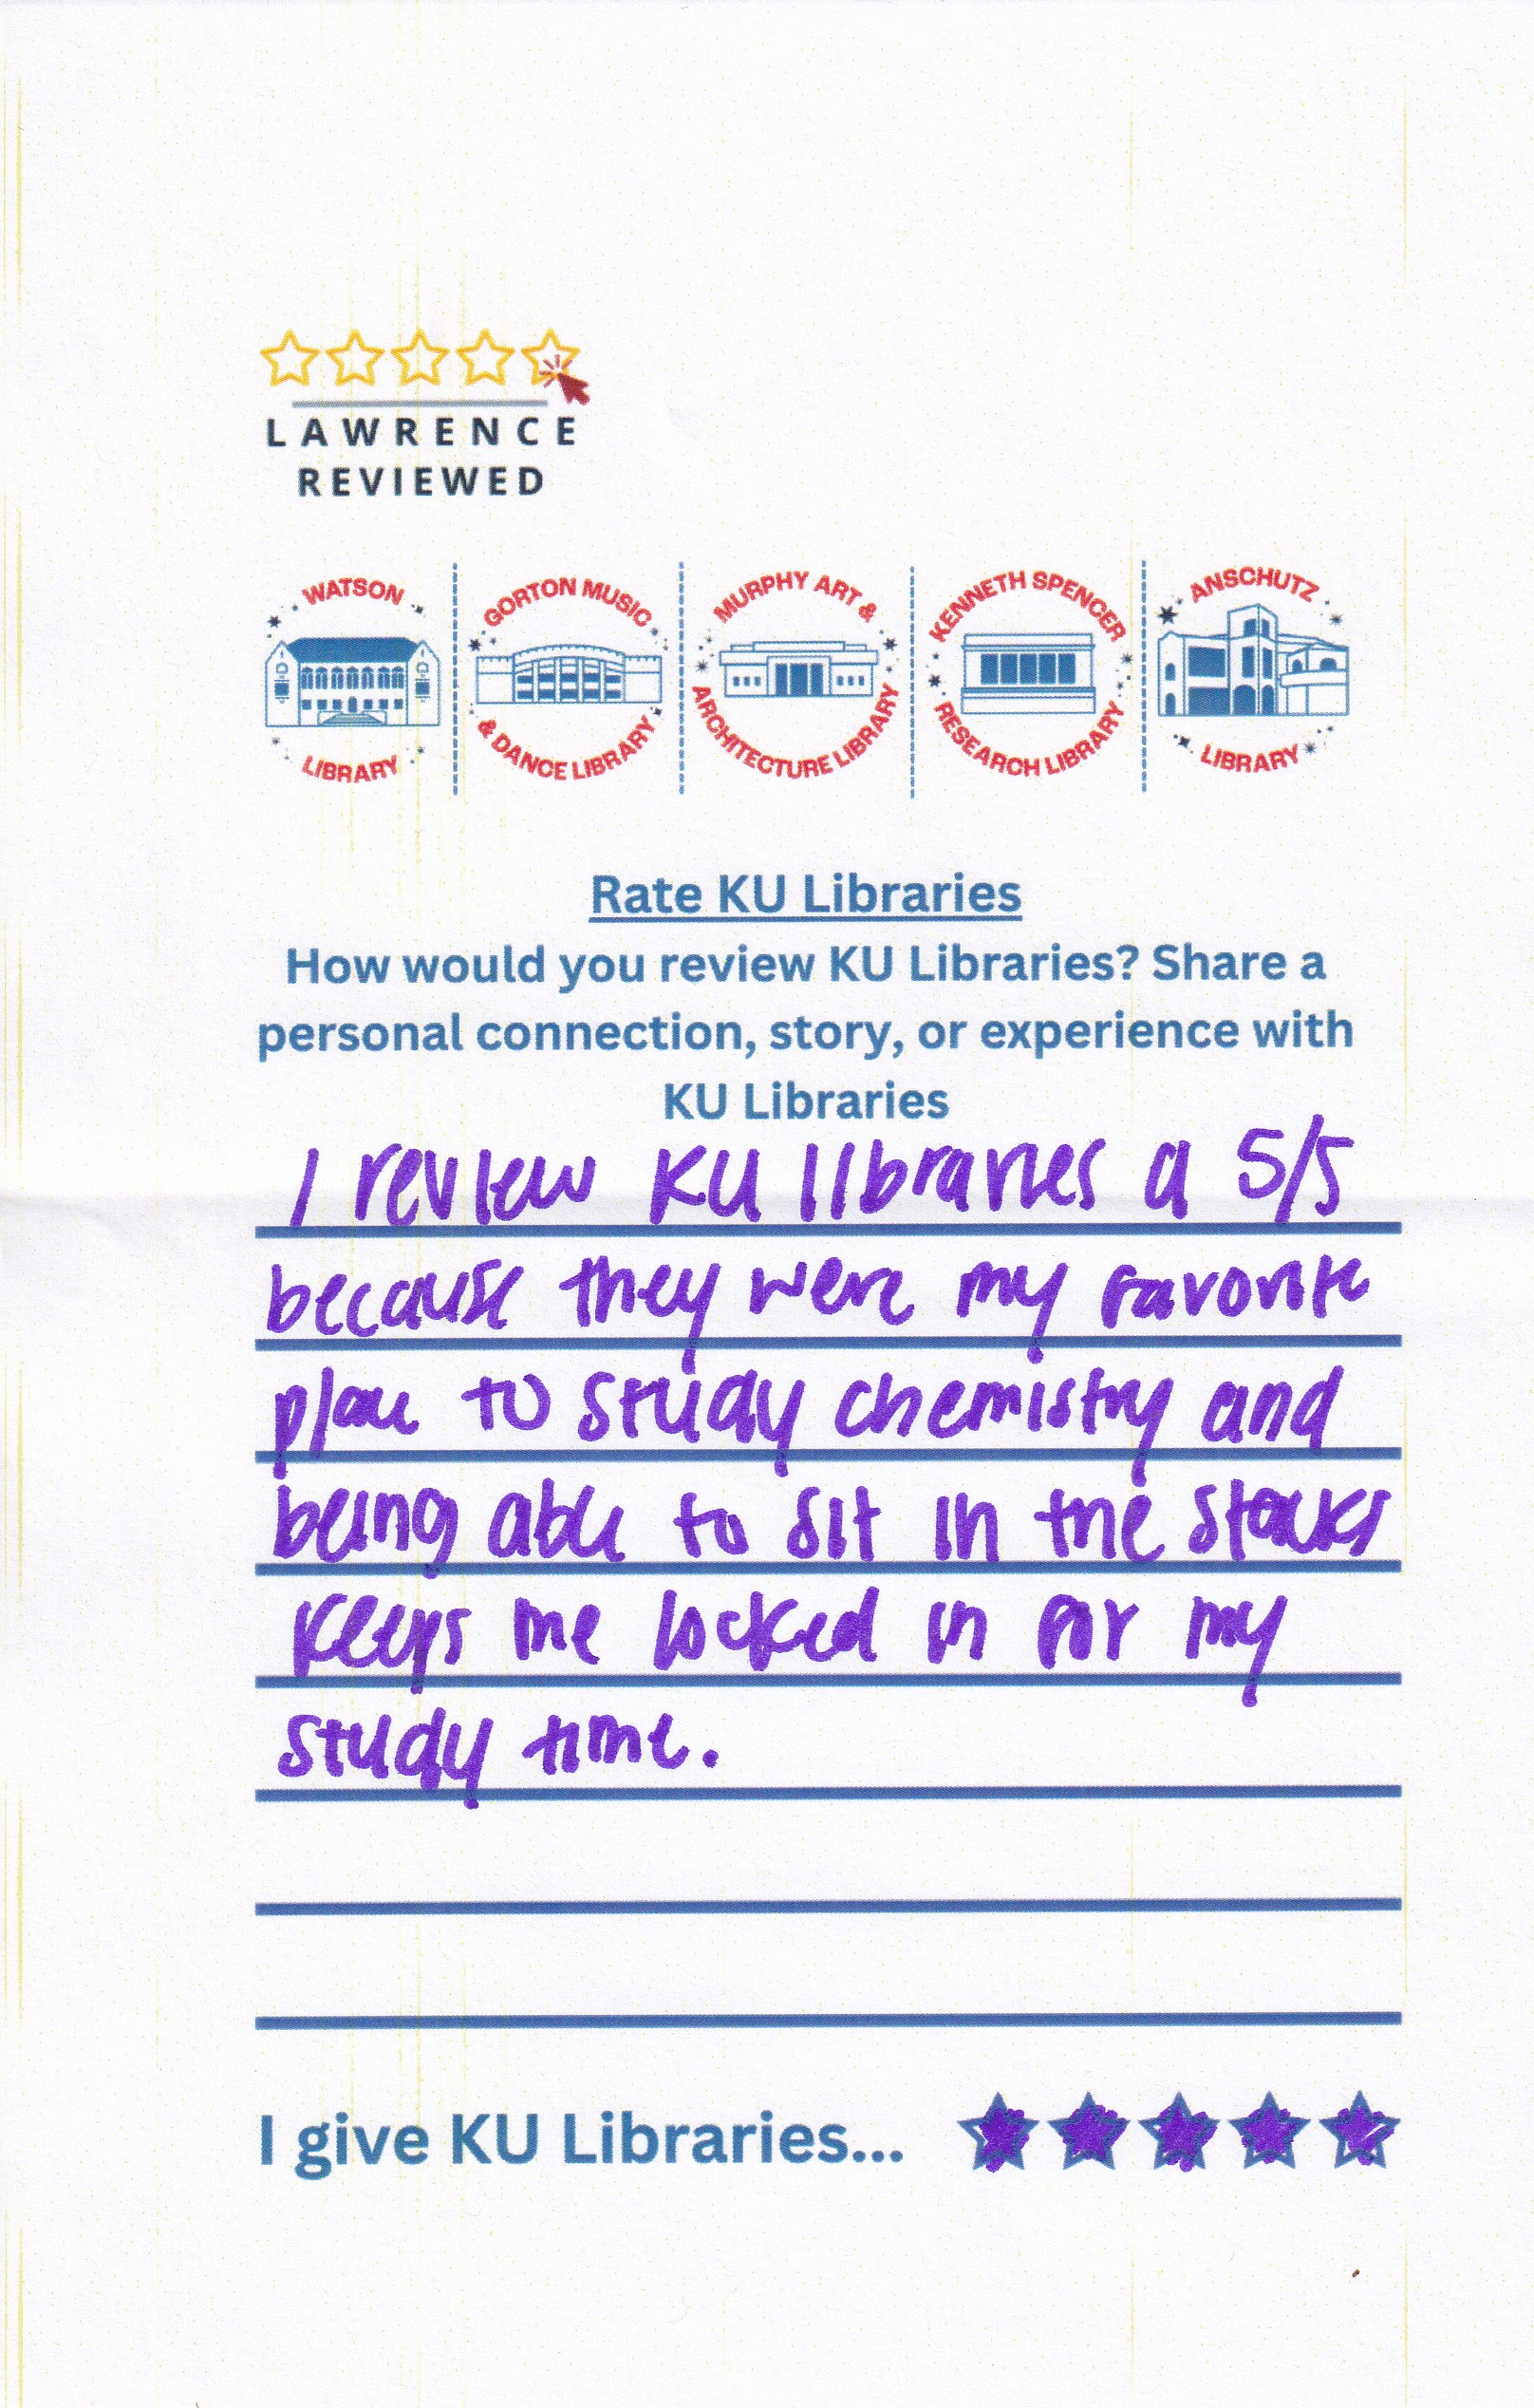 LAWRENCE
REVIEWED
WATSON LIBRARY
GORTON MUSIC & DANCE LIBRARY
MURPHY ART & ARCHITECTURE LIBRARY
KENNETH SPENCER RESEARCH LIBRARY
ANSCHUTZ LIBRARY
Rate KU Libraries
How would you review KU Libraries? Share a
personal connection, story, or experience with
KU Libraries
I review KU libraries a 5/5
because they were my favorite
place to study chemistry and
being able to sit in the stacks
keeps me locked in for my
study time.
I give KU Libraries...